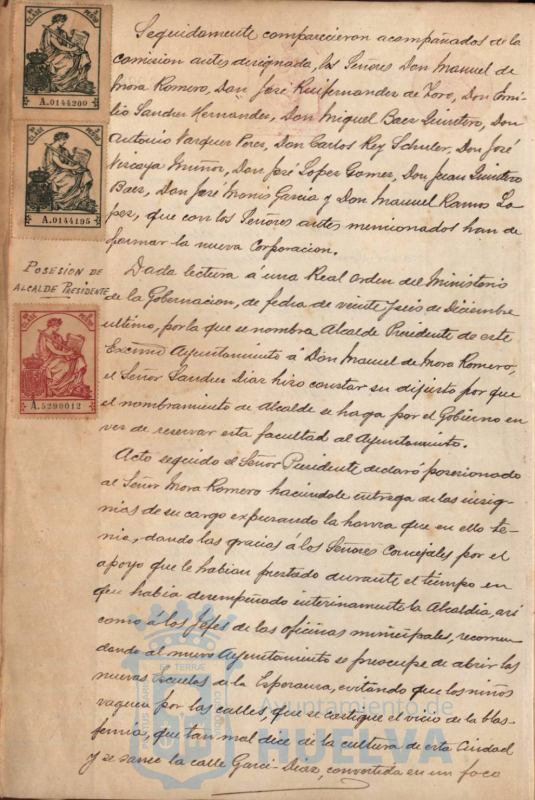 Seguidamente comparecieron acompañados de la
comision antes designada, los Señores Don Manuel de
Mora Romero, Don José Ruifernandez de Toro, Don Emi-
lio Sandres Hernandez, Don Miguel Baez Quintero, Don
Antonio Vazquez Perez, Don Carlos Rey Schuler, Don José
Vizcaya Muñoz, Don José Lopez Gomez, Don Juan Quintero
Baez, Don José Monis Garcia y Don Manuel Ramos Lo-
pez, que con los Señores antes mencionados han de
formar la nueva Corporacion.
POSESION DE
ALCALDE PRESIDENTE
Dada lectura á una Real Orden del Ministerio
de la Gobernacion, de fecha de veinte y seis de Diciembre
ultimo, por la que se nombra Alcalde Presidente de este
Excmo Ayuntamiento á Don Manuel de Mora Romero,
el Señor Sandres Diaz hizo constar su disgusto por que
el nombramiento de Alcalde se haga por el Gobierno en
vez de reservar esta facultad al Ayuntamiento.
Acto seguido el Señor Presidente declaró posesionado
al Señor Mora Romero haciendole entrega de las insig-
nias de su cargo expresando la honra que en ello te-
nia, dando las gracias á los Señores Concejales por el
apoyo que le habian prestado durante el tiempo en
que habia desempeñado interinamente la Alcaldia, asi
como á los Jefes de las oficinas municipales, recomen-
dando al nuevo Ayuntamiento se preocupe de abrir las
nuevas Escuelas de la Esperanza, evitando que los niños
vaguen por las calles, que se castigue el vicio de la blas-
femia, que tan mal dice de la cultura de esta Ciudad
y se sanee la calle Garci-Diaz, convertida en un foco
A.0144200
A.0144195
A.5290012
Ayuntamiento de
HUELVA